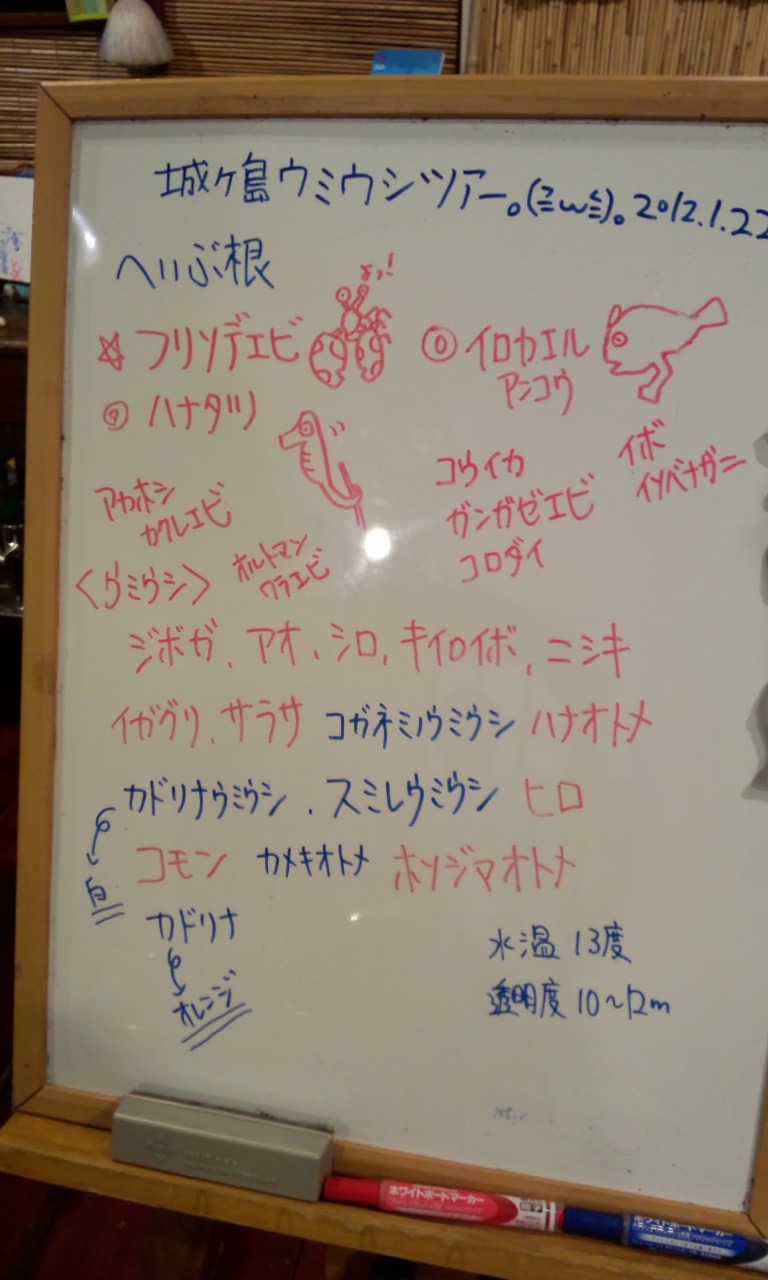 城ヶ島ウミウシツアー。(ミωミ)。2012.1.22
へいぶ根
よっ!
☆フリソデエビ
◎イロカエル
アンコウ
◎ハナタツ
アカホシ
カクレエビ
オルトマン
ワラエビ
コウイカ
ガンガゼエビ
コロダイ
イボ
イソバナガニ
〈ウミウシ〉
ジボガ、アオ、シロ、キイロイボ、ニシキ
イガグリ、サラサ コガネミノウミウシ ハナオトメ
カドリナウミウシ、スミレウミウシ ヒロ
白
コモン カメキオトメ ホソジマオトメ
カドリナ
オレンジ
水温 13度
透明度 10~12m
ホワイトボードマーカー
ホワイトボードマーカー